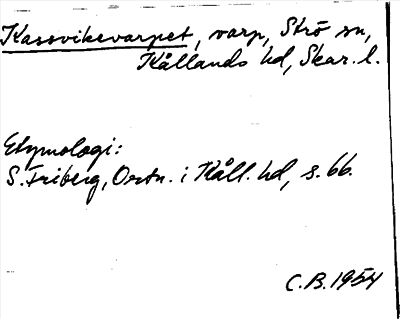 Kassvikevarpet, varp, Strö sn,
Kållands hd, Skar. l.
Etymologi:
S. Friberg, Ortn. i Kåll. hd, s. 66.
C.B. 1954